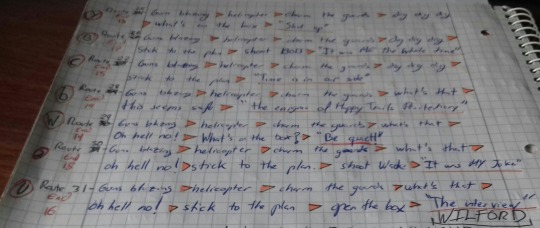 Guns blazing > helicopter > charm the guards > dig dig dig
> what's in the box > "Shut up"
Guns blazing > helicopter > charm the guards > dig dig dig
stick to the plan > shoot > "It was Me The Whole Time"
Route Guns blazing > helicopter > charm the guards > dig dig dig
stick to the plan >
Route Guns blazing > helicopter > charm the guards > what's that >
End this seems safe > "the enigma of Happy Trails Penitentiary"
W Route Guns blazing > helicopter > charm the guards > what's that >
End Oh hell no! > What's in the box? > "Be quiet!"
Route Guns blazing > helicopter > charm the guards > what's that >
End oh hell no! > stick to the plan. > shoot > "It was MY Joke"
Route 31 - Guns blazing > helicopter > charm the guards > what's that >
End 16 oh hell no! > stick to the plan > open the box > "The interview"
WILFORD